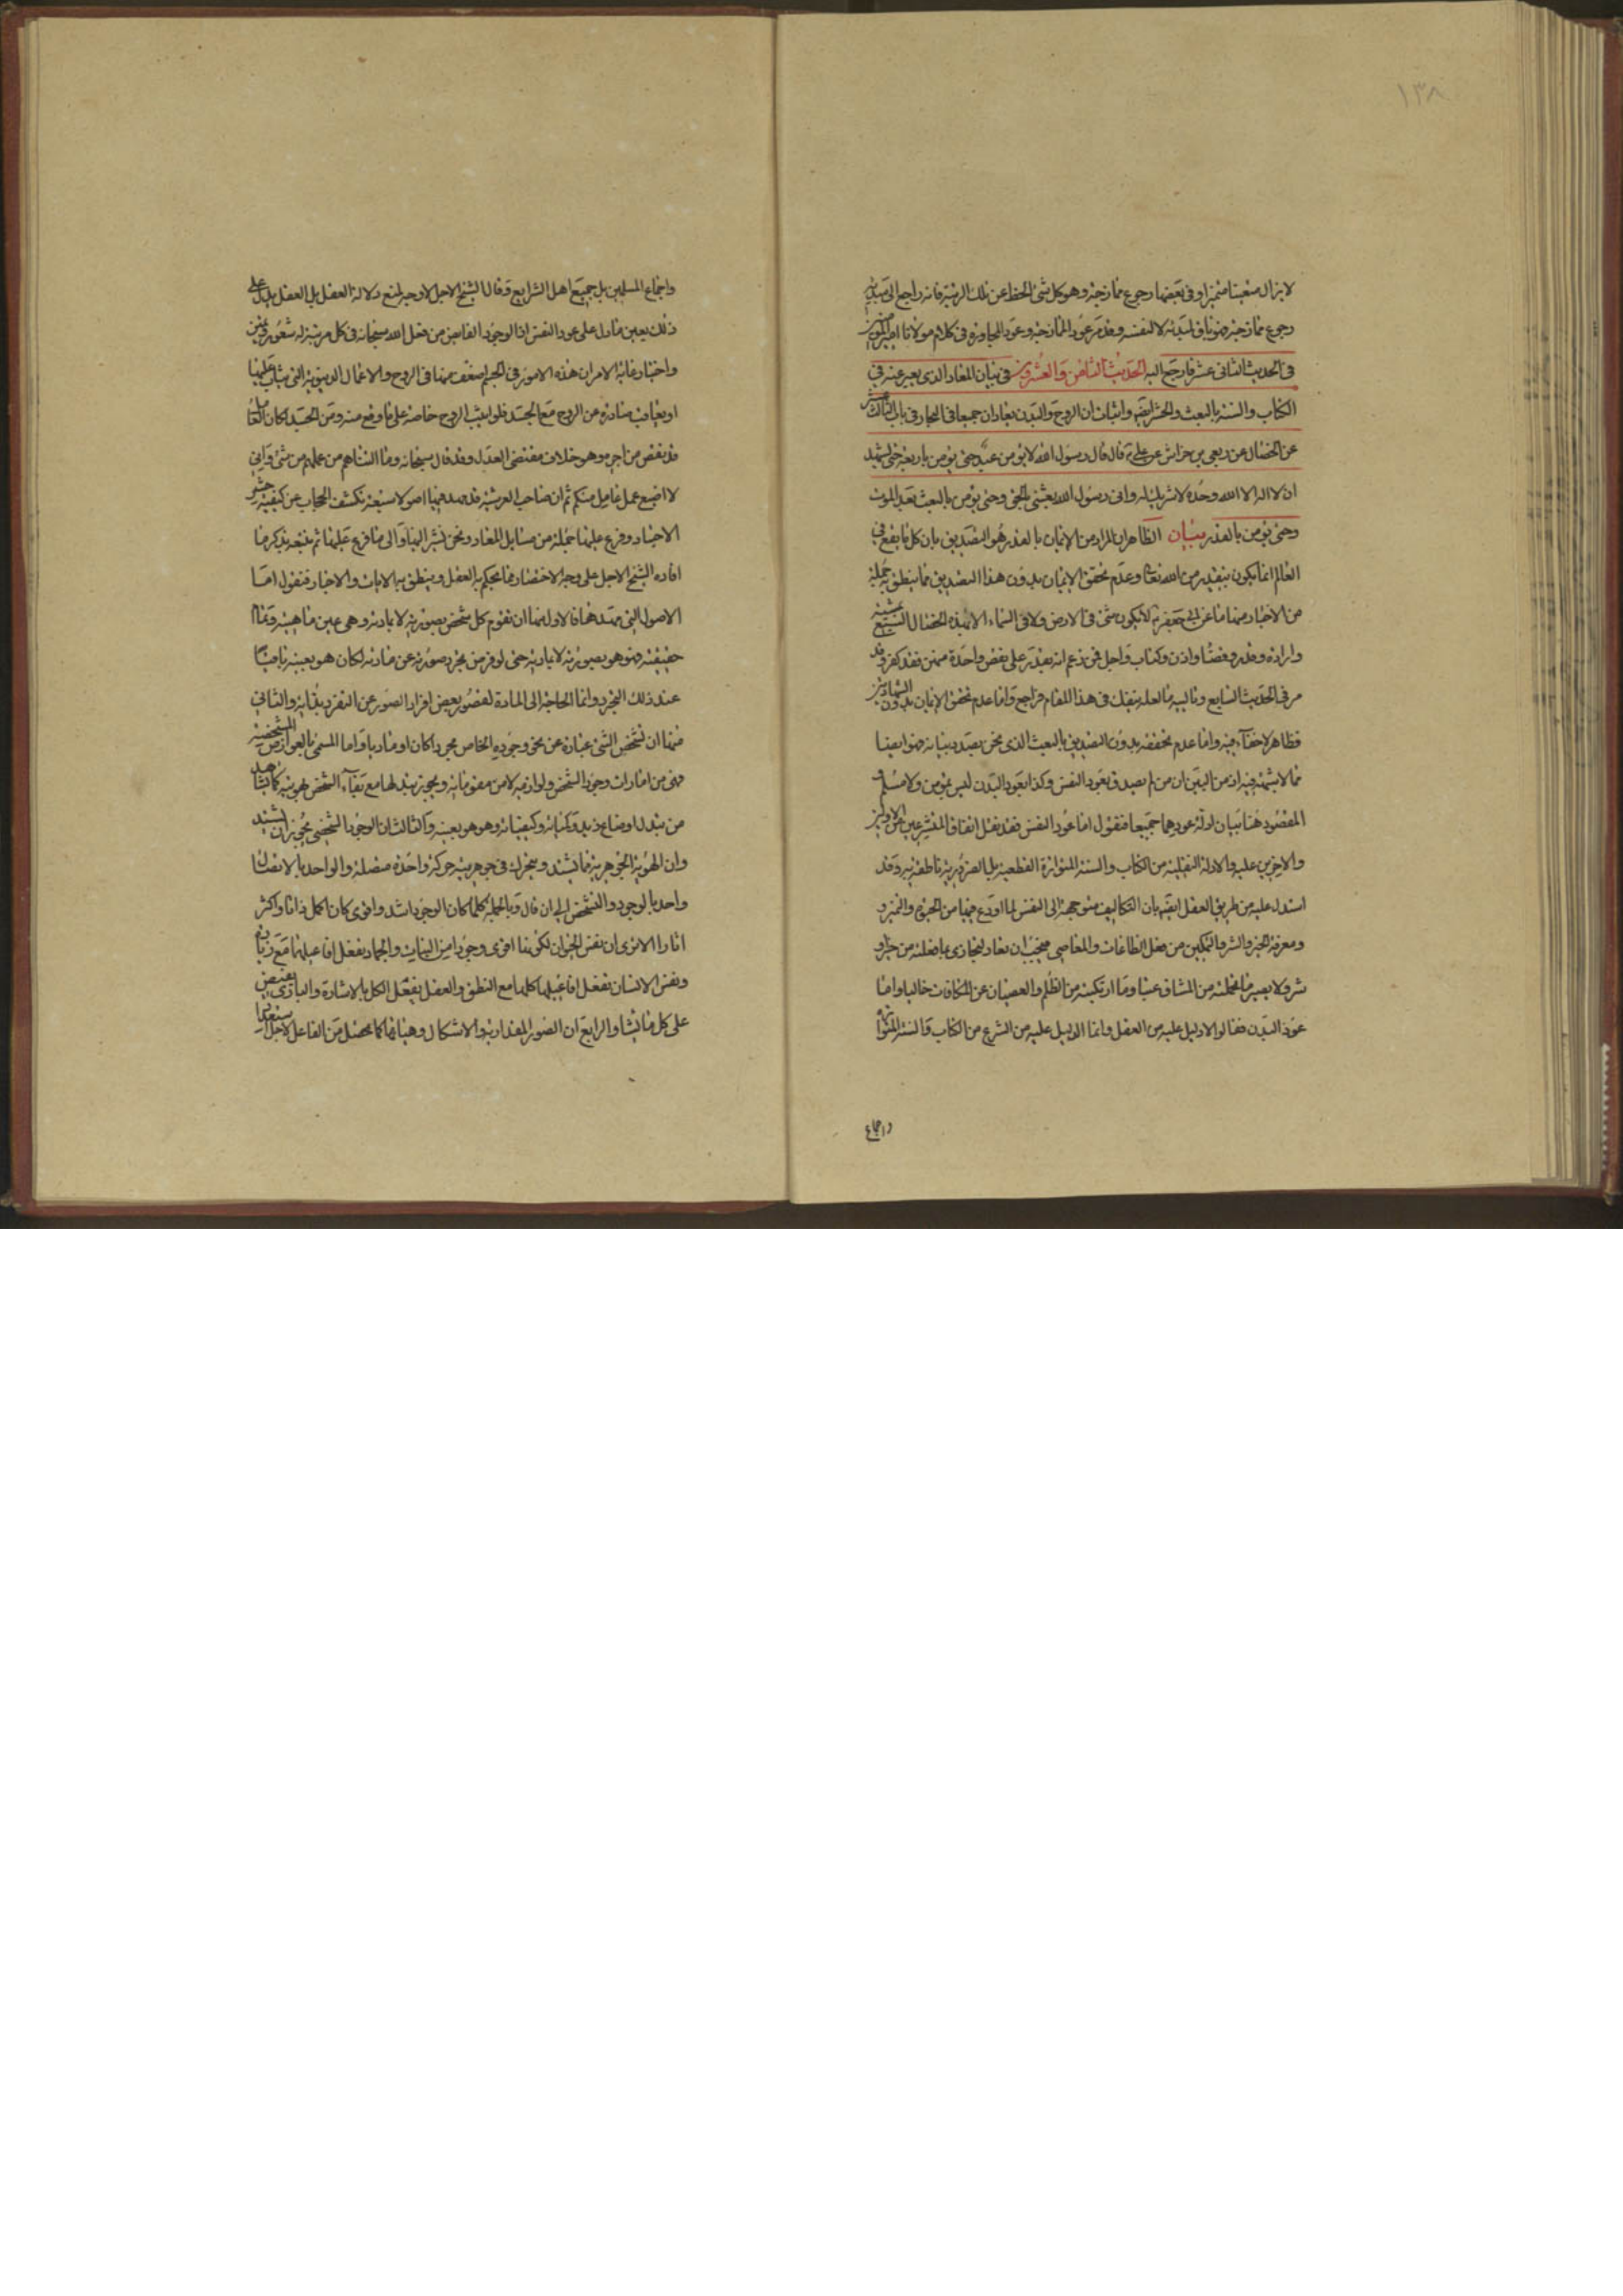 ١٣٨
لا يزال متعينا متميزا وفى بعضها رجوع ممازجة وهو كل شئ انحط عن تلك الرتبة فانه راجع الى مبدئه
رجوع ممازجة فهو باق لبدنه لا لنفسه وقد مر عود الممازجة وعود المجاورة فى كلام مولانا امير المؤمنين
فى الحديث الثانى عشر فارجع اليه الحديث الثامن والعشرون فى بيان المعاد الذى يعبر عنه فى
الكتاب والسنة بالبعث والحشر ايضا واثبات ان الروح والبدن يعادان جميعا فى البحار فى باب الثالث
عن الخصال عن ربعى بن خراش عن على ع قال قال رسول الله لا يؤمن عبد حتى يؤمن باربعة حتى يشهد
ان لا اله الا الله وحده لا شريك له وانى رسول الله بعثنى بالحق وحتى يؤمن بالبعث بعد الموت
وحتى يؤمن بالقدر بيان الظاهر ان المراد من الايمان بالقدر هو التصديق بان كل ما يقع فى
العالم انما يكون بتقدير من الله تعالى وعدم تحقق الايمان بدون هذا التصديق مما ينطق به جملة
من الاخبار منها ما عن ابى جعفر ع لا يكون شئ فى الارض ولا فى السماء الا بهذه الخصال السبع بمشية
وارادة وقدر وقضاء واذن وكتاب واجل فمن زعم انه يقدر على نقض واحدة منهن فقد كفر وقد
مر فى الحديث السابع وتاليه ما لعله ينفعك فى هذا المقام فراجع واما عدم تحقق الايمان بدون الشهادتين
فظاهر لا خفاء فيه واما عدم تحققه بدون التصديق بالبعث الذى نحن بصدد بيانه فهو ايضا
مما لا يشتبه فيه اذ من اليقين ان من لم يصدق بعود النفس وكذا بعود البدن ليس بمؤمن ولا مسلم و
المقصود هنا بيان ادلة عودهما جميعا فنقول اما عود النفس فقد نقل اتفاق المتشرعين من الاولين
والاخرين عليه والادلة النقلية من الكتاب والسنة المتواترة القطعية بل الضرورية ناطقة به وقد
استدل عليه من طريق العقل ايضا بان التكاليف متوجهة الى النفس لما اودع فيها من الخبرة والتميز و
ومعرفة الخير والشر والتمكين من فعل الطاعات والمعاصى فيجب ان تعاد لتجازى بما فعلته من خير و
شر ولا يصير ما تحملته من المشاق عبثا وما ارتكبته من الظلم والعصيان عن المكافات خاليا واما
عود البدن فقالوا لا دليل عليه من العقل وانما الدليل عليه من الشرع من الكتاب والسنة المتواترة
واجماع
واجماع المسلمين بل جميع اهل الشرايع وقال الشيخ الاجل الاوحد لمنع دلالة العقل بل العقل يدل على
ذلك بعين ما دل على عود النفس اذ الوجود الفايض من فعل الله سبحانه فى كل مرتبة له شعور وتميز
واختيار غاية الامر ان هذه الامور فى الجسم اضعف منها فى الروح والاعمال الدينوية التى يثاب عليها
او يعاقب صادرة من الروح مع الجسد فلو اثيب الروح خاصة على ما وقع منه ومن الجسد لكان العامل
قد نقص من اجره وهو خلاف مقتضى العدل وقد قال سبحانه وما التناهم من عملهم من شئ وانى
لا اضيع عمل عامل منكم ثم ان صاحب العرشية قد مهد فيها اصولا سبعة تكشف الحجاب عن كيفية حشر
الاجساد وفرع عليها جملة من مسايل المعاد ونحن نشير اليها والى ما فرع عليها ثم نتبعه بذكر ما
افاده الشيخ الاجل على وجه الاختصار مما يحكم به العقل وينطق به الايات والاخبار فنقول اما
الاصول التى مهدها فالاول منها ان تقوم كل شخص بصورته لا بمادته وهى عين ماهيته وتمام
حقيقته فهو هو بصورته لا بمادته حتى لو فرض تجرد صورته عن مادته لكان هو بعينه باقيا
عند ذلك التجرد وانما الحاجة الى المادة لقصور بعض افراد الصور عن التفرد بذاته والثانى
منها ان تشخص الشئ عبارة عن نحو وجوده الخاص مجردا كان او ماديا واما المسمى بالعوارض المشخصة
فهى من امارات وجود الشخص ولوازمه لا من مقوماته ويجوز تبدلها مع بقاء الشخص بهويته كما يشاهد
من تبدل اوضاع زيد وكمياته وكيفياته وهو هو بعينه والثالث ان الوجود الشخصى يجوز ان يشتد
وان الهوية الجوهرية مما يشتد ويتحرك فى جوهريته حركة واحدة متصلة والواحد بالاتصال
واحد بالوجود والتشخص الى ان قال وبالجملة كلما كان الوجود اشد واقوى كان اكمل ذاتا واكثر
اثارا الا ترى ان نفس الحيوان لكونها اقوى وجودا من النبات والجماد يفعل افاعيلها مع زيادة
ونفس الانسان تفعل افاعيلها كلها مع النطق والعقل يفعل الكل بالاشارة والبارى يفيض
على كل ما يشاء والرابع ان الصور المقدارية والاشكال وهيئاتها كما تحصل من الفاعل لاجل استعداد